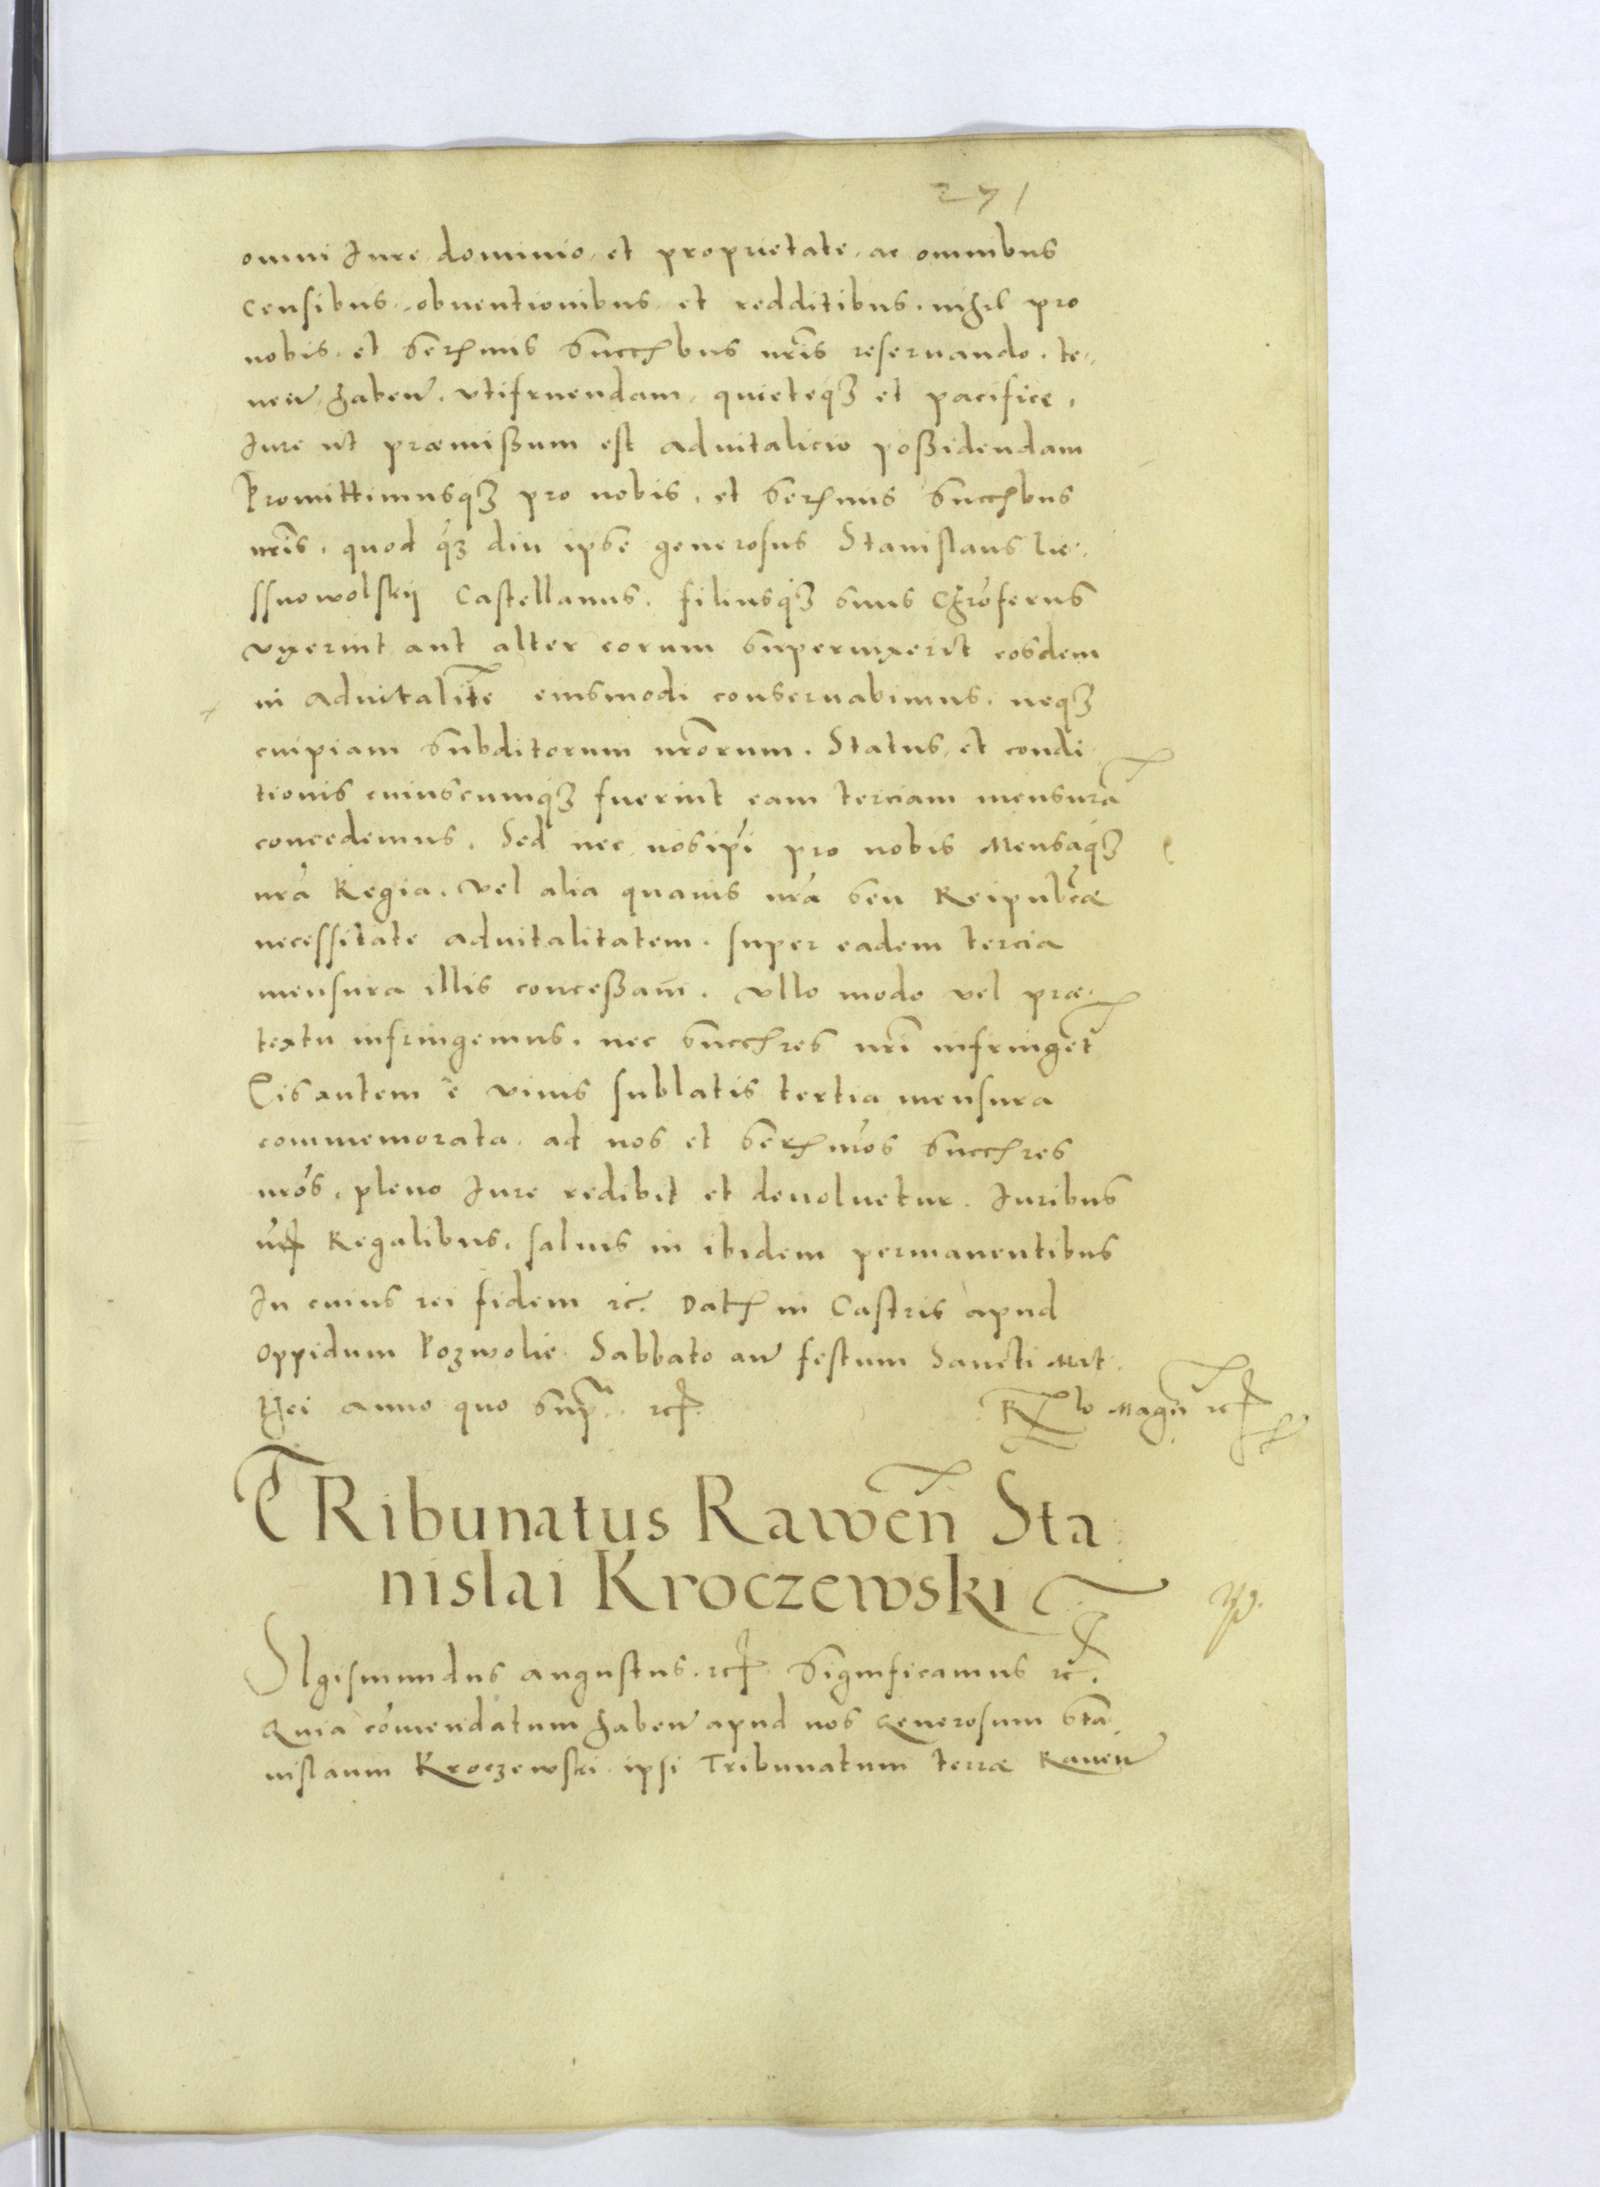 271
omni Jure dominio et proprietate ac omnibus
Censibus, obuentionibus et redditibus, nihil pro
nobis et Ser͞mis Succ͞bus nr͞is reseruando, te-
nen͞ haben͞. vtifruendam, quieteq́ꝫ et pacifice,
Jure ut præmißum est aduitalicio poßidendam
Promittimusq́ꝫ pro nobis, et Ser͞mis Succ͞bus
nr͞is, quod q́ꝫ diu ipse generosus Stanislaus Lie-
ssnowolskij Castellanus, filiusq́ꝫ suus Chro͞ferus
vixerint aut alter eorum superuixerit eosdem
in aduitalit͞e eiusmodi conseruabimus, neq́ꝫ
cuipiam Subditorum nr͞orum, Status et condi-
tionis cuiuscumq́ꝫ fuerint eam terciam mensura͞
concedemus. Sed nec nosip͞i pro nobis Mensaq́ꝫ
nr͞a Regia, vel alia quauis nr͞a seu Reipub͞cæ
necessitate aduitalitatem, super eadem tercia
mensura illis conceßam, vllo modo vel præ-
textu infringemus, nec Succ͞res nr͞i infringet͞
Eis autem è viuis sublatis tertia mensura
commemorata, ad nos et Ser͞mos Succ͞res
nr͞os, pleno Jure redibit et deuoluetur. Juribus
nr͞is Regalibus, saluis in ibidem permanentibus
In cuius rei fidem ꝛc. Dat͞ in Castris apud
Oppidum Pozwolie Sabbato an͞ festum Sancti Mat-
thei anno quo sup͞ꝛa. ꝛc R͞lo Mag͞n ꝛc
TRibunatus Rawen͞ Sta
nislai Kroczewski
SIgismundus augustus ꝛc Significamus ꝛc.
Quia com͞endatum haben͞ apud nos Generosum Sta
nislaum Kroczewski ipsi Tribunatum terræ Rauen͞